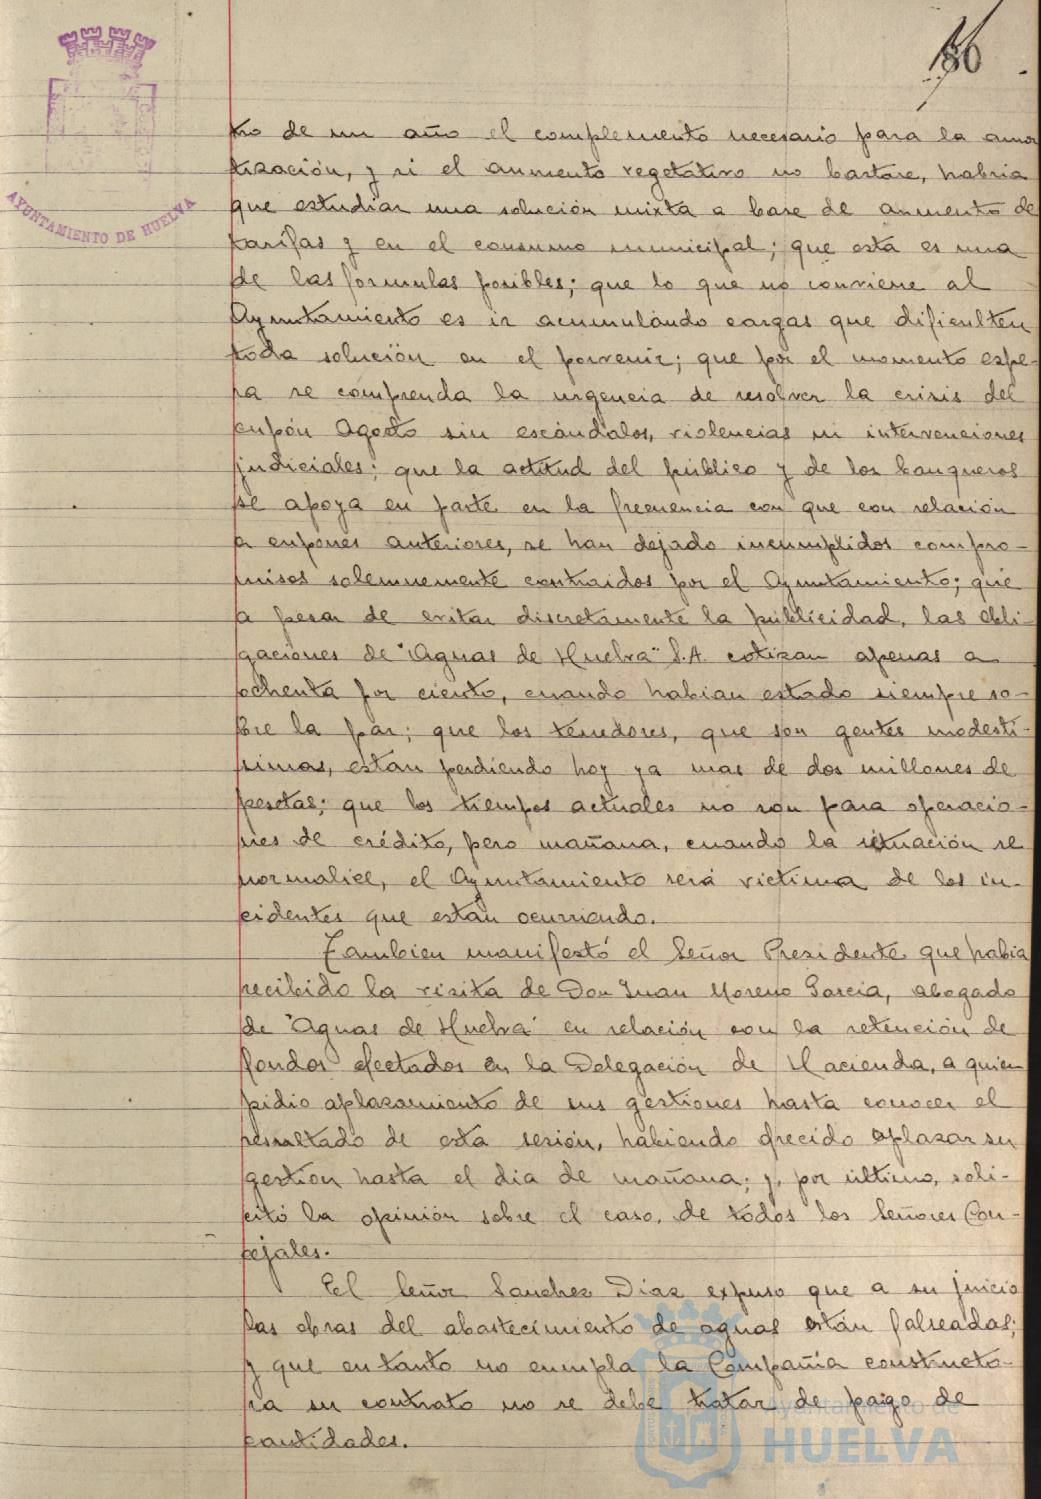 186
AYUNTAMIENTO DE HUELVA
tro de un año el complemento necesario para la amor
tización, y si el aumento vegetativo no bastare, habria
que estudiar una solución mixta a base de aumento de
tarifas y en el consumo municipal; que esta es una
de las formulas posibles; que lo que no conviene al
Ayuntamiento es ir acumulando cargas que dificulten
toda solución en el porvenir; que por el momento espe-
ra se comprenda la urgencia de resolver la crisis del
cupón Agosto sin escándalos, violencias ni intervenciones
judiciales; que la actitud del público y de los banqueros
se apoya en parte en la frecuencia con que con relación
a cupones anteriores, se han dejado incumplidos compro-
misos solemnemente contraidos por el Ayuntamiento; que
a pesar de evitar discretamente la publicidad, las obli-
gaciones de "Aguas de Huelva" S.A. cotizan apenas a
ochenta por ciento, cuando habian estado siempre so-
bre la par; que los tenedores, que son gentes modestí-
simas, estan perdiendo hoy ya mas de dos millones de
pesetas; que los tiempos actuales no son para operacio-
nes de crédito, pero mañana, cuando la situación se
normalice, el Ayuntamiento será victima de los in-
cidentes que estan ocurriendo.
Tambien manifestó el Señor Presidente que habia
recibido la visita de Don Juan Moreno Garcia, abogado
de "Aguas de Huelva" en relación con la retención de
fondos efectados en la Delegación de Hacienda, a quien
pidio aplazamiento de sus gestiones hasta conocer el
resultado de esta sesión, habiendo ofrecido aplazar su
gestion hasta el dia de mañana; y, por ultimo, soli-
citó la opinión sobre el caso, de todos los Señores Con-
cejales.
El Señor Sanchez Diaz expuso que a su juicio
las obras del abastecimiento de aguas están falseadas;
y que en tanto no cumpla la Compañía constructo-
ra su contrato no se debe tratar de pago de
cantidades.
Ayuntamiento de
HUELVA